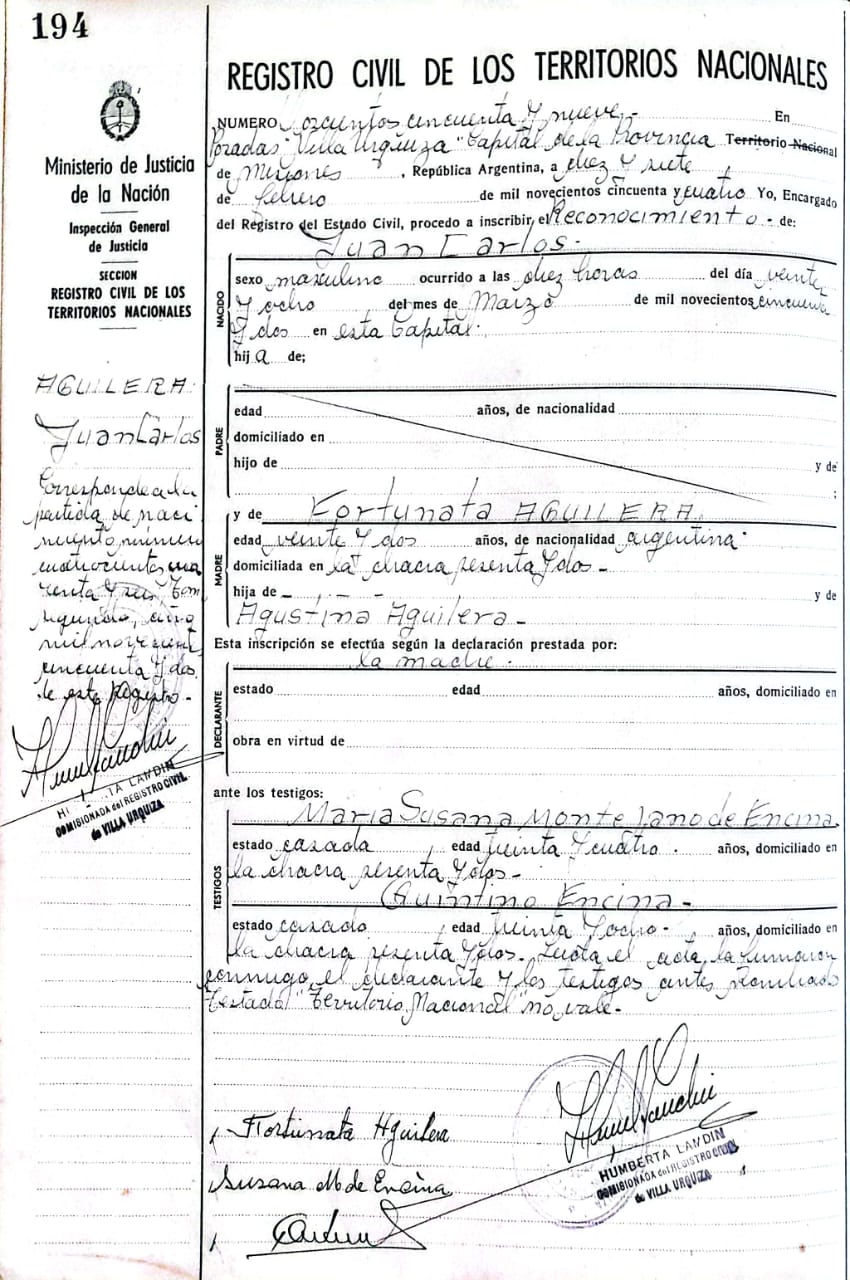 194
REGISTRO CIVIL DE LOS TERRITORIOS NACIONALES
Ministerio de Justicia
de la Nación
Inspección General
de Justicia
SECCION
REGISTRO CIVIL DE LOS
TERRITORIOS NACIONALES
AGUILERA
Juan Carlos
Corresponde a la
partida de naci
miento número
cuatrocientos cua
renta y seis Tom
segundo, año
mil novecient
cincuenta y dos
de este Registro.-
LANDIN
COMISIONADA del REGISTRO CIVIL
de VILLA URQUIZA
NUMERO doscientos cincuenta y nueve.- En
Posadas "Villa Urquiza" Capital de la Provincia Territorio Nacional
de Misiones, República Argentina, a diez y siete
de febrero de mil novecientos cincuenta y cuatro Yo, Encargado
del Registro del Estado Civil, procedo a inscribir el Reconocimiento.- de:
Juan Carlos.-
NACIDO
sexo masculino ocurrido a las diez horas del día veinte
y ocho del mes de Marzo de mil novecientos cincuenta
y dos en esta Capital.
hij a de;
PADRE
edad años, de nacionalidad
domiciliado en
hijo de y de
;
MADRE
y de Fortunata AGUILERA.
edad veinte y dos años, de nacionalidad argentina.
domiciliada en la chacra sesenta y dos.-
hija de - . - - y de
Agustina Aguilera.-
Esta inscripción se efectúa según la declaración prestada por:
la madre.
DECLARANTE
estado edad años, domiciliado en
obra en virtud de
ante los testigos:
TESTIGOS
Maria Susana Monte de Encina.
estado casada, edad treinta y cuatro. años, domiciliado en
la chacra sesenta y dos.-
Quintino Encina.-
estado casado, edad treinta y ocho.-, años, domiciliado en
la chacra sesenta y dos. el acta, la firmaron
conmigo el declarante y los testigos antes nombrados
Testado "Territorio Nacional" no vale.-
Fortunata Aguilera
Susana M de Encina
HUMBERTA LANDIN
COMISIONADA del REGISTRO CIVIL
de VILLA URQUIZA